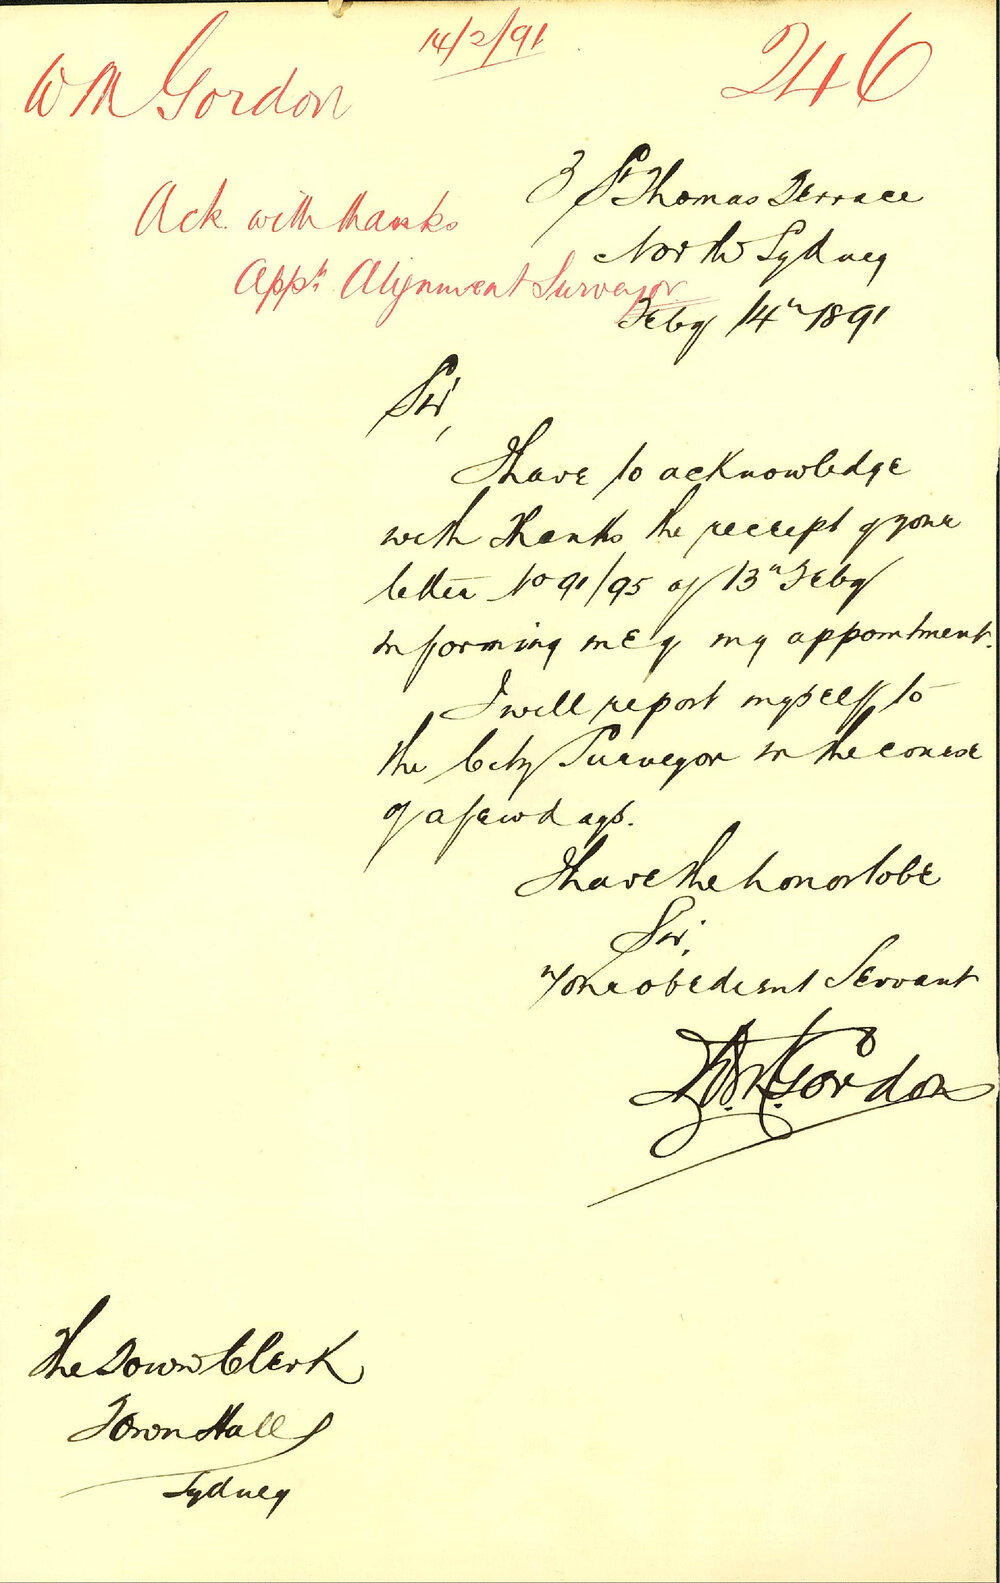 14/2/91
246
W M Gordon
Ack. with thanks
Appt. Alignment Surveyor
3 St Thomas Terrace
North Sydney
Feby 14th 1891
Sir,
I have to acknowledge
with thanks the receipt of your
letter No 91/95 of 13th Feby
informing me of my appointment.
I will report myself to
the City Surveyor in the course
of a few days.
I have the honor to be
Sir,
Your obedient Servant
Gordon
The Town Clerk
Town Hall
Sydney